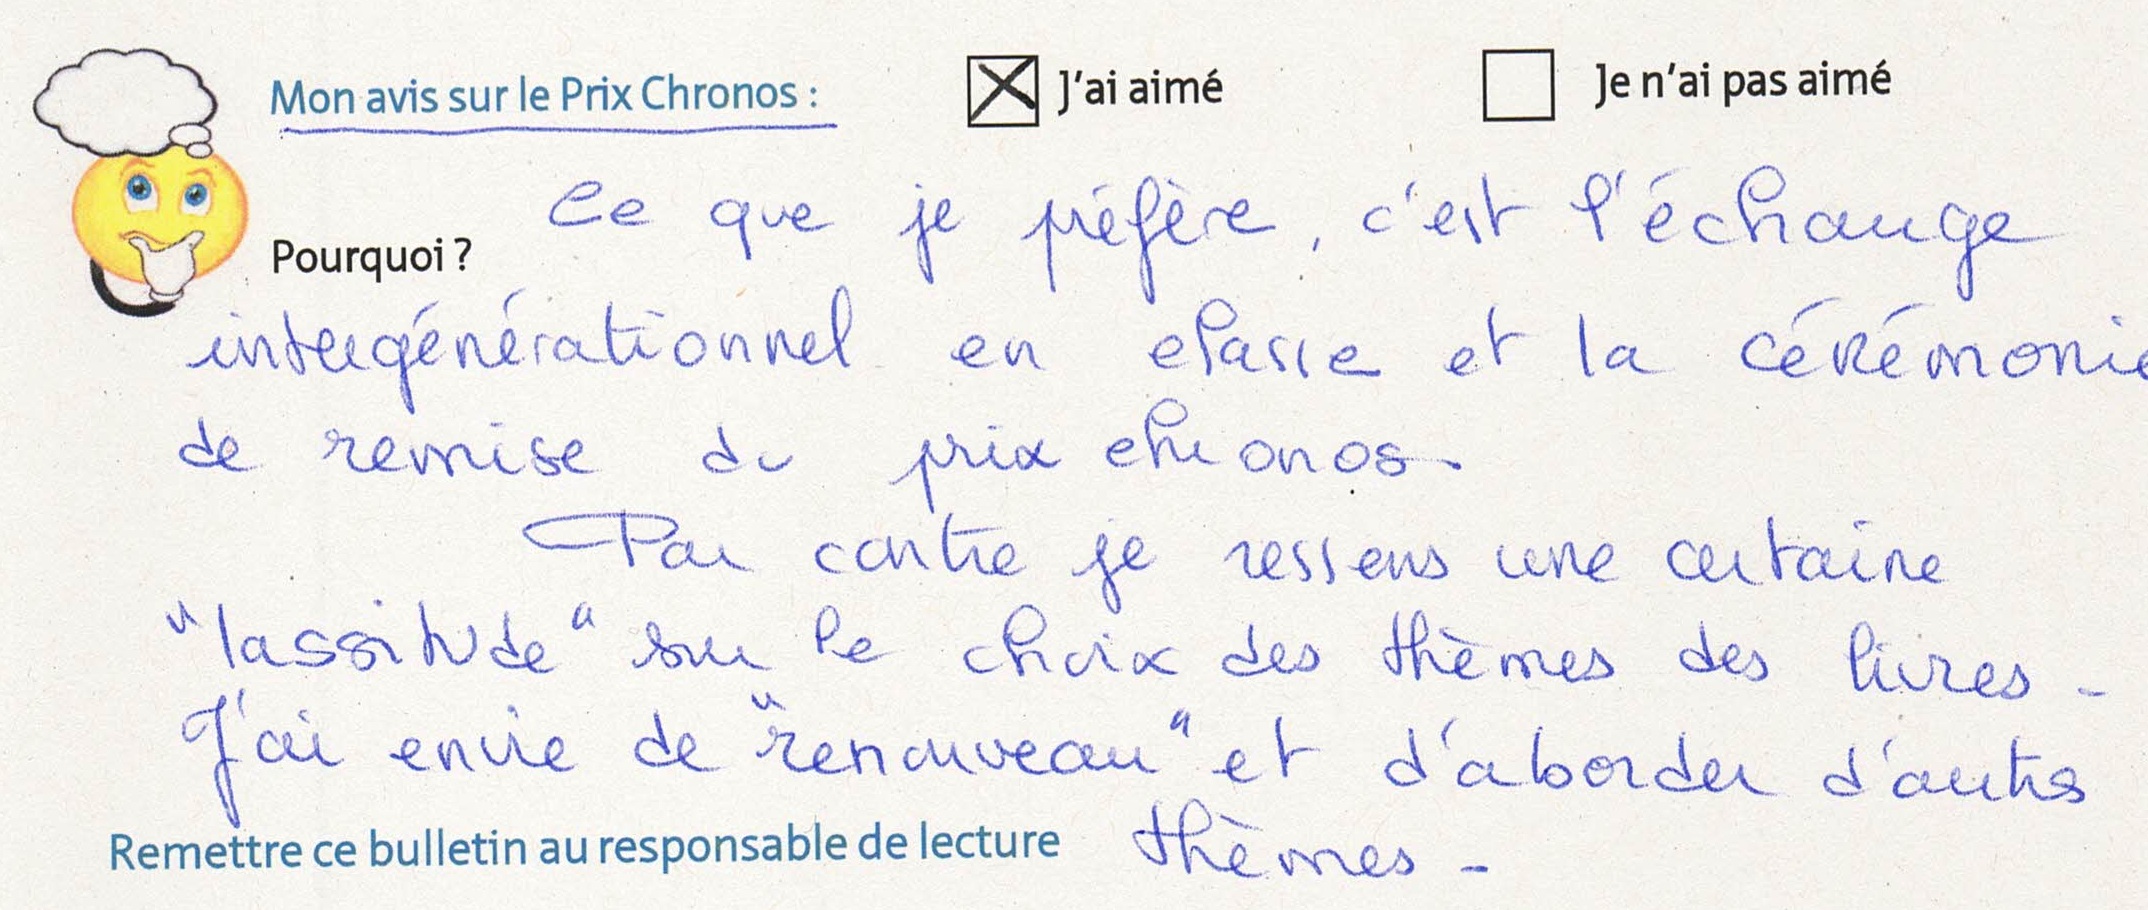 Mon avis sur le Prix Chronos : ☒ J'ai aimé ☐ Je n'ai pas aimé
Ce que je préfère, c'est l'échange
Pourquoi ?
intergénérationnel en classe et la cérémonie
de remise du prix chronos.
Par contre je ressens une certaine
"lassitude" sur le choix des thèmes des livres -
J'ai envie de "renouveau" et d'aborder d'autres
Remettre ce bulletin au responsable de lecture thèmes -